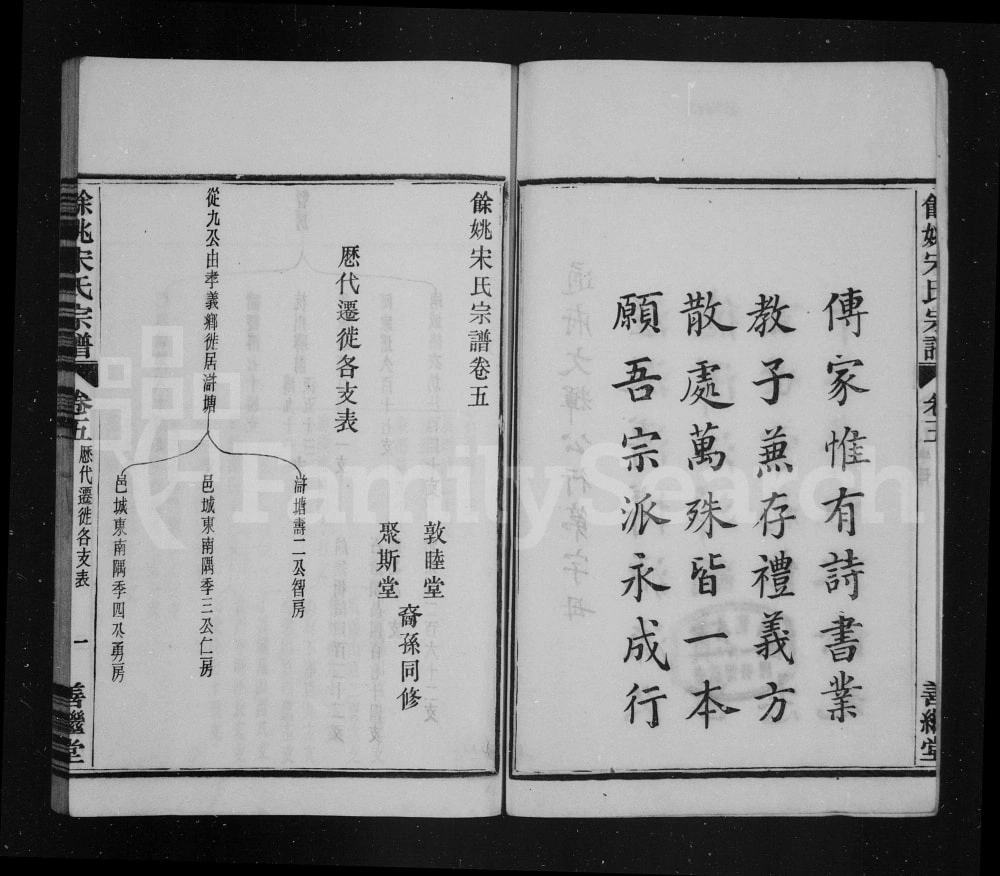 傳家惟有詩書業
教子兼存禮義方
散處萬殊皆一本
願吾宗派永成行
餘姚宋氏宗譜
善繼堂
餘姚宋氏宗譜卷五
敦睦堂
聚斯堂
裔孫同修
歷代遷徙各支表
從九公由孝義鄉徙居滸塘
滸塘壽二公智房
邑城東南隅季三公仁房
邑城東南隅季四公勇房
餘姚宋氏宗譜
卷五
歷代遷徙各支表
一
善繼堂
FamilySearch